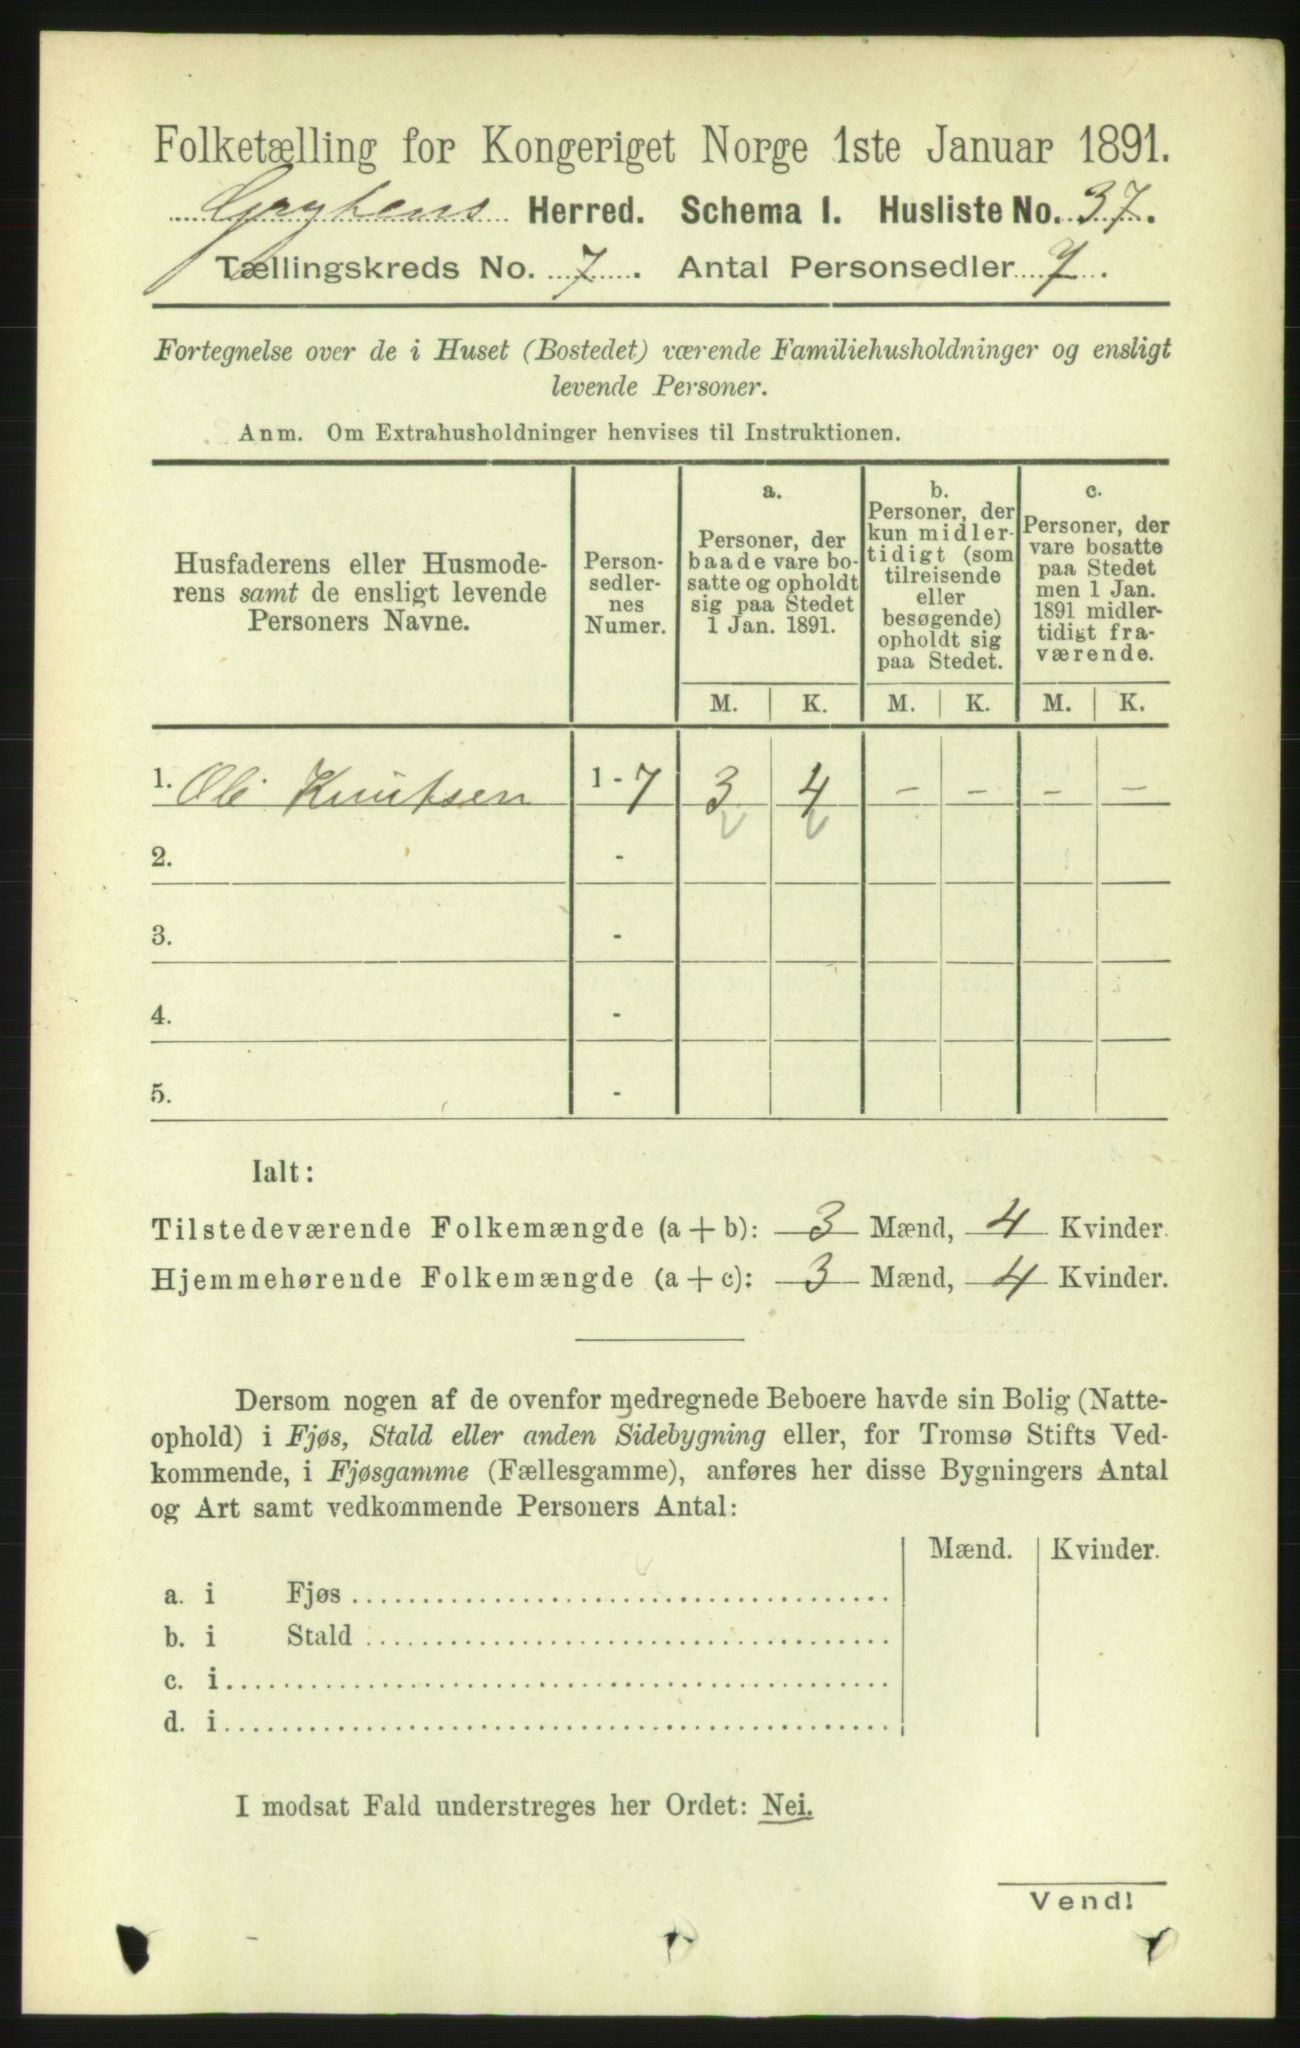 Folketælling for Kongeriget Norge 1ste Januar 1891.
Herred. Schema I. Husliste No. 37.
Tællingskreds No. 7. Antal Personsedler 7.
Fortegnelse over de i Huset (Bostedet) værende Familiehusholdninger og ensligt
levende Personer.
Anm. Om Extrahusholdninger henvises til Instruktionen.
Husfaderens eller Husmode-
rens samt de ensligt levende
Personers Navne.
Person-
sedler-
nes
Numer.
a.
Personer, der
baade vare bo-
satte og opholdt
sig paa Stedet
1 Jan. 1891.
b.
Personer, der
kun midler-
tidigt (som
tilreisende
eller
besøgende)
opholdt sig
paa Stedet.
c.
Personer, der
vare bosatte
paa Stedet
men 1 Jan.
1891 midler-
tidigt fra-
værende.
M. K. M. K. M. K.
1. Ole Knutsen 1 - 7 3 4 - - - -
2. -
3. -
4. -
5. -
Ialt:
Tilstedeværende Folkemængde (a + b): 3 Mænd, 4 Kvinder.
Hjemmehørende Folkemængde (a + c): 3 Mænd, 4 Kvinder.
Dersom nogen af de ovenfor medregnede Beboere havde sin Bolig (Natte-
ophold) i Fjøs, Stald eller anden Sidebygning eller, for Tromsø Stifts Ved-
kommende, i Fjøsgamme (Fællesgamme), anføres her disse Bygningers Antal
og Art samt vedkommende Personers Antal:
Mænd. Kvinder.
a. i Fjøs
b. i Stald
c. i
d. i
I modsat Fald understreges her Ordet: Nei.
Vend!